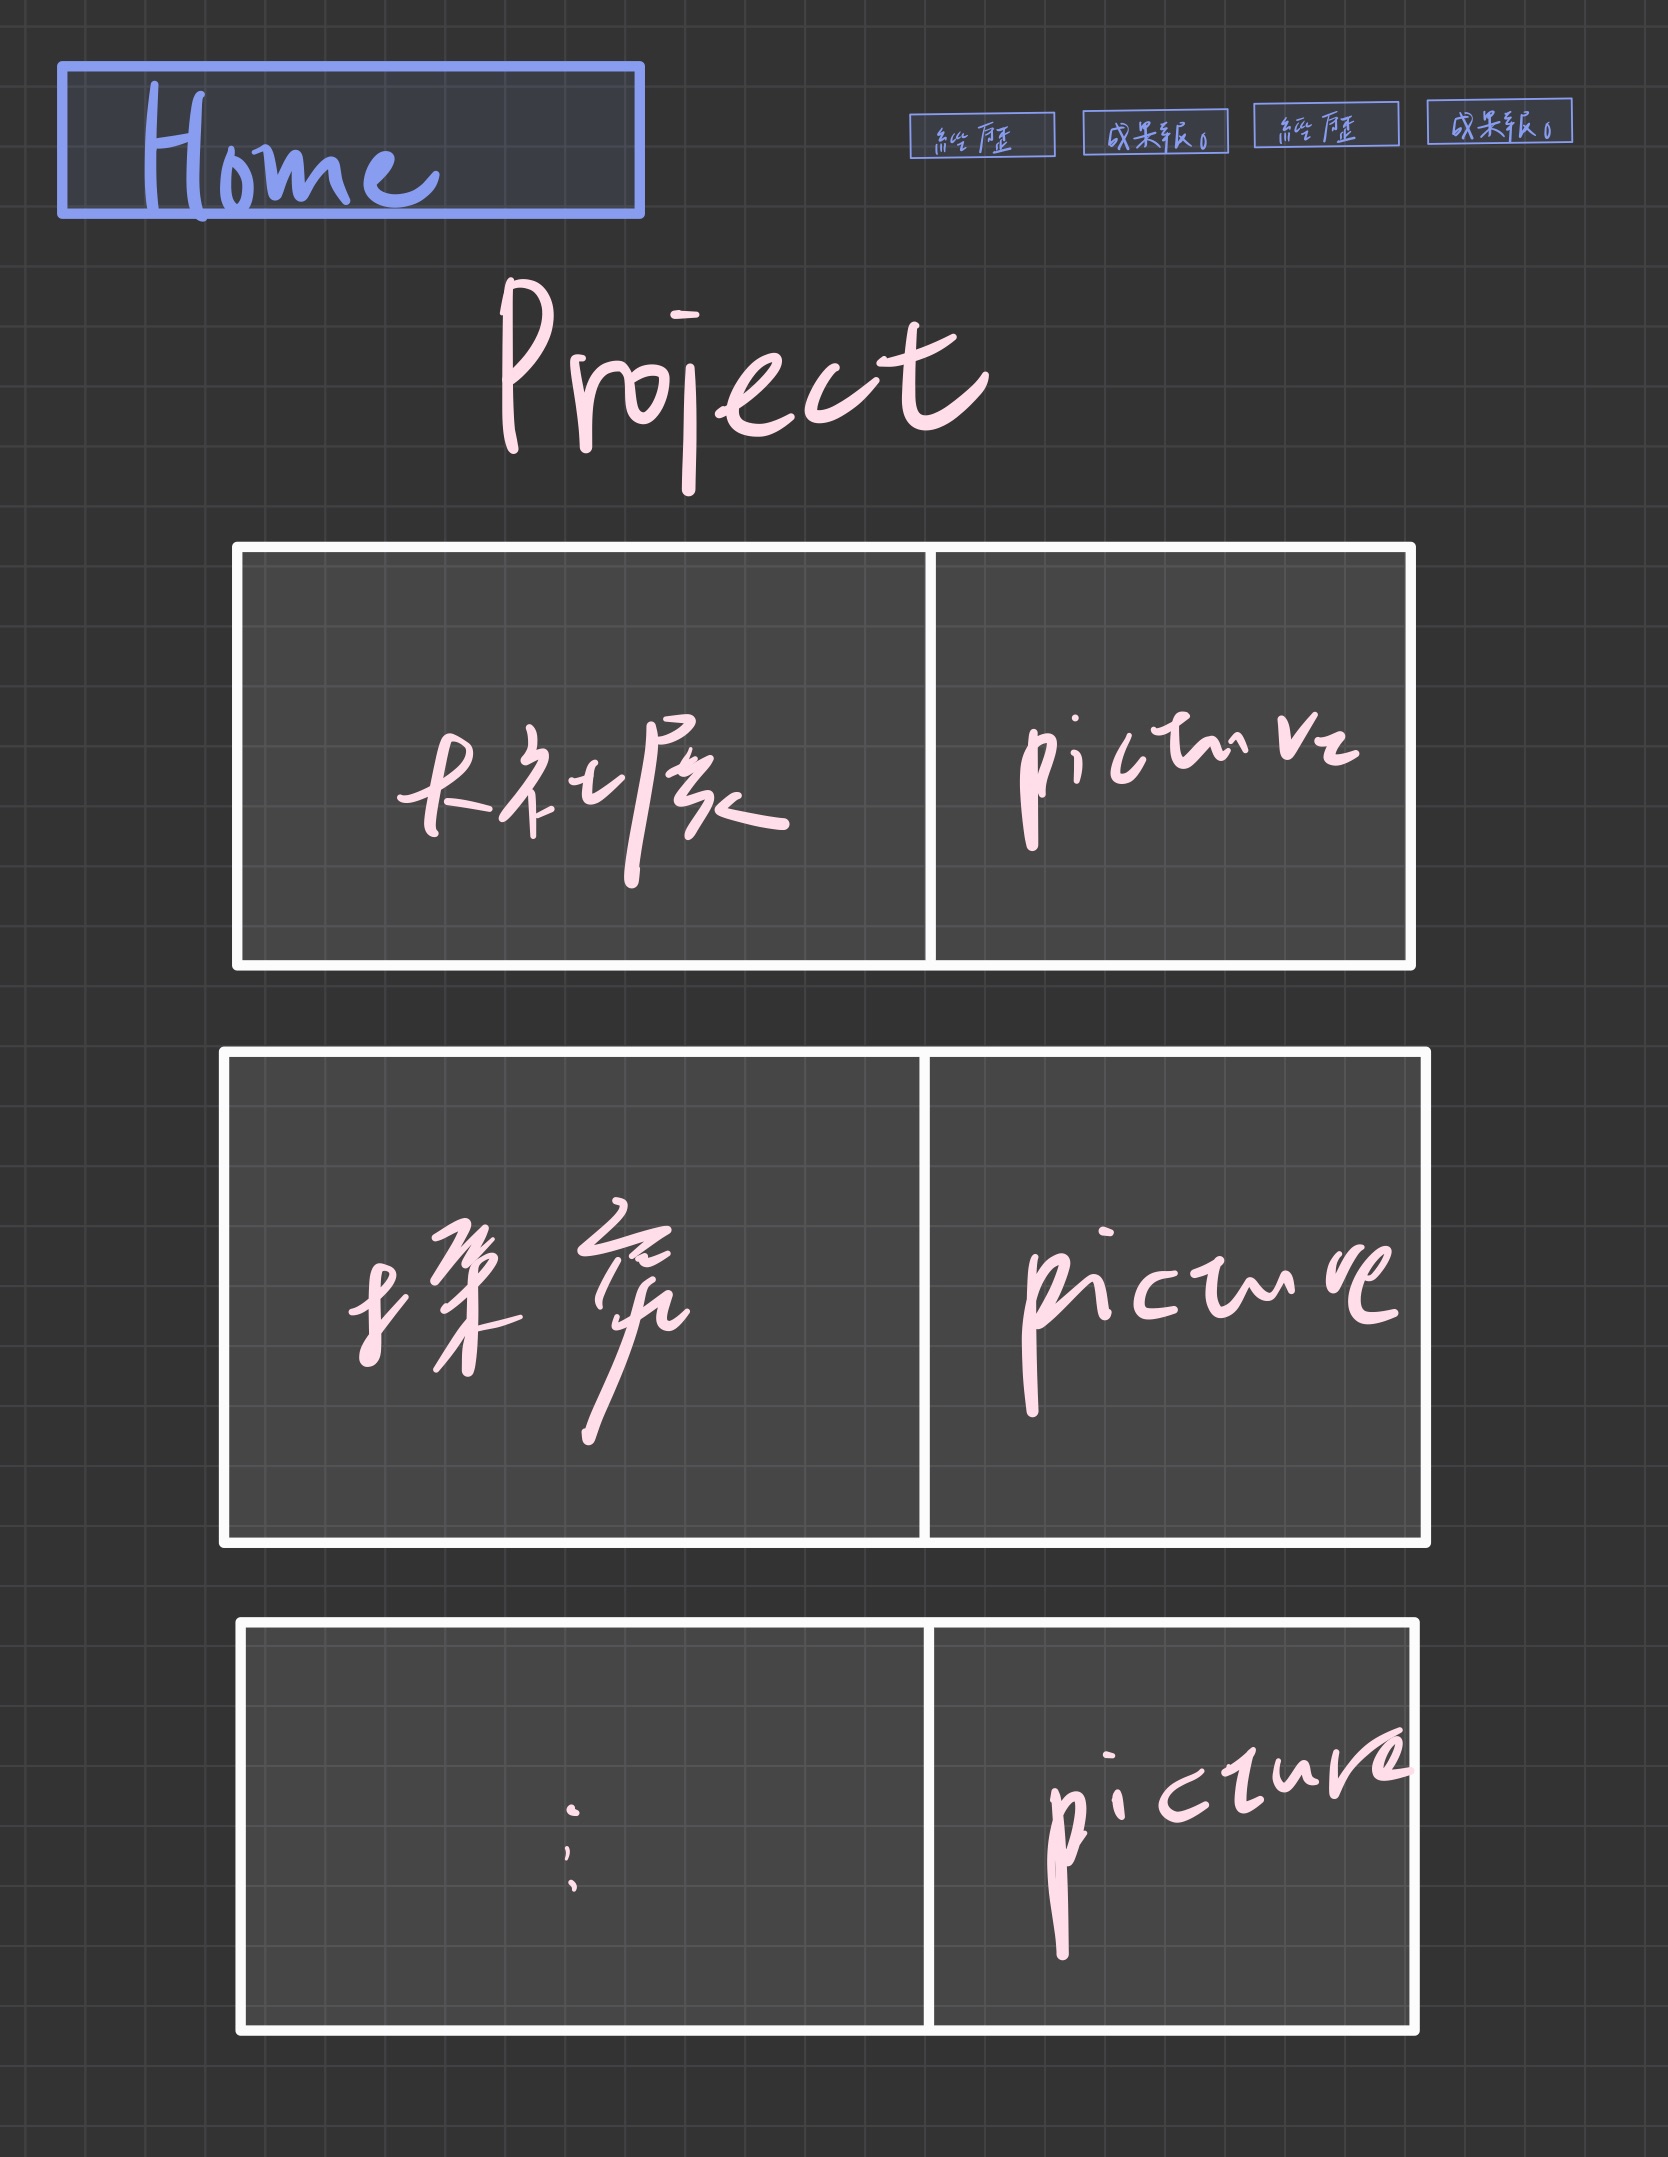 Home
經歷 成果紙。 經歷 成果紙。
Project
picture
探究 picture
⋮ picture